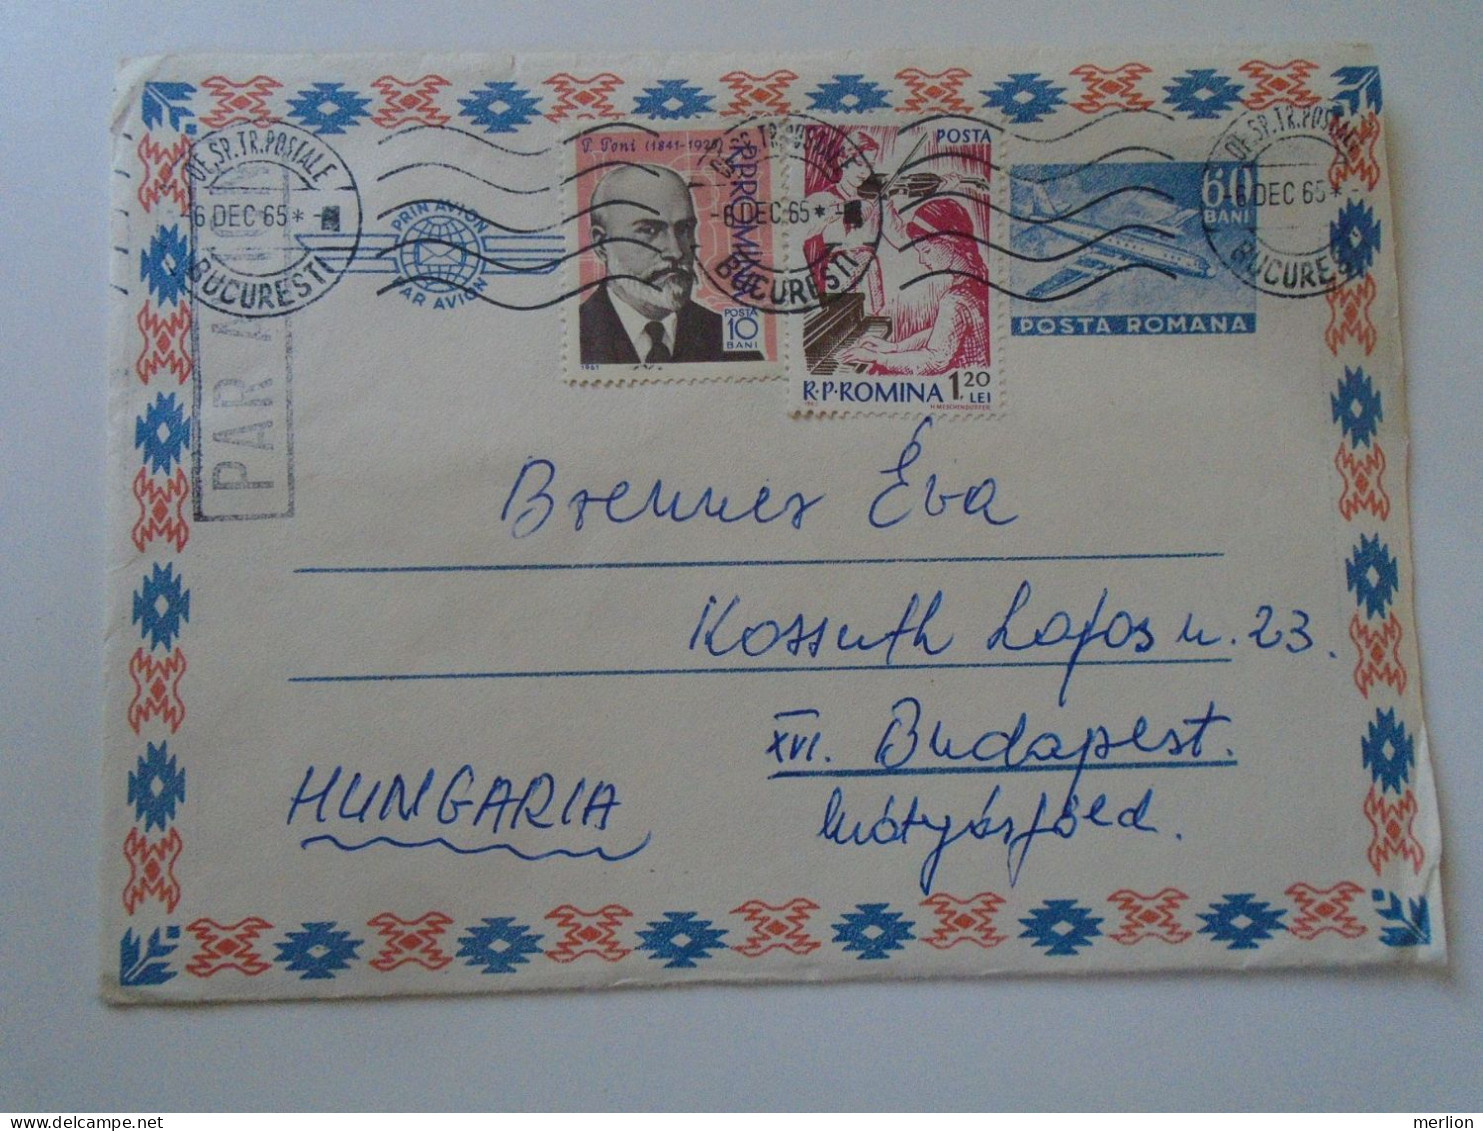 OF.SP.TR.POSTALE
-6 DEC 65 *
BUCURESTI
PAR AVION
PRIN AVION
PAR AVION
P. Poni (1841-1925)
R.P.ROMINA
POSTA
10
BANI
1961
OF.SP.TR.POSTALE
-6 DEC 65 *
BUCURESTI
POSTA
R.P.ROMINA 1,20
LEI
60
BANI
POSTA ROMANA
OF.SP.TR.POSTALE
-6 DEC 65 *
BUCURESTI
Brenner Éva
Kossuth Lajos u. 23.
XVI. Budapest.
Mátyásföld.
HUNGARIA
merlion
delcampe.net